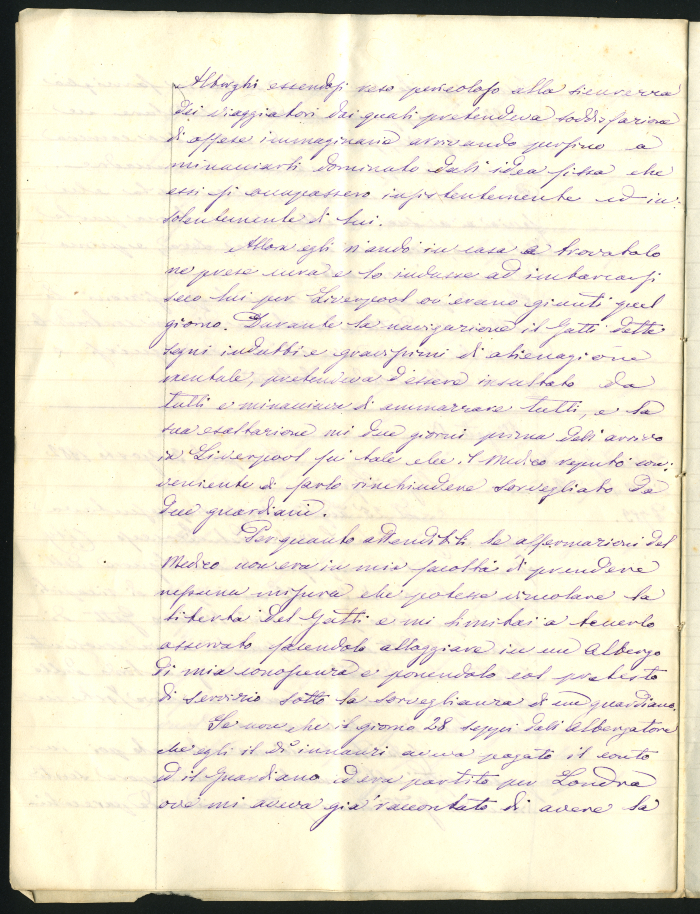 Alberghi essendosi reso pericoloso alla sicurezza
dei viaggiatori dai quali pretendeva soddisfazione
di offese immaginarie arrivando perfino a
minacciarli dominato dall'idea fissa che
essi si occupassero insistentemente ed in:
solentemente di lui.
Allora egli n'andò in casa e trovatolo
ne prese cura e lo indusse ad imbarcarsi
seco lui per Liverpool ov'erano giunti quel
giorno. Durante la navigazione il Gatti dette
segni indubbi e gravissimi di alienazione
mentale, pretendeva d'essere insultato da
tutti e minacciava di ammazzare tutti, e la
sua esaltazione nei due giorni prima dell'arrivo
in Liverpool fu tale che il Medico reputò con:
veniente di farlo rinchiudere sorvegliato da
due guardiani.
Per quanto attendibili le affermazioni del
Medico non era in mia facoltà di prendere
nessuna misura che potesse vincolare la
libertà del Gatti e mi limitai a tenerlo
osservato facendolo alloggiare in un Albergo
di mia conoscenza e ponendolo col pretesto
di servizio sotto la sorveglianza di un guardiano.
Se non che il giorno 28 seppi dall'Albergatore
che egli il dì innanzi aveva pagato il conto
ed il Guardiano ed era partito per Londra
ove mi aveva già raccontato di avere la